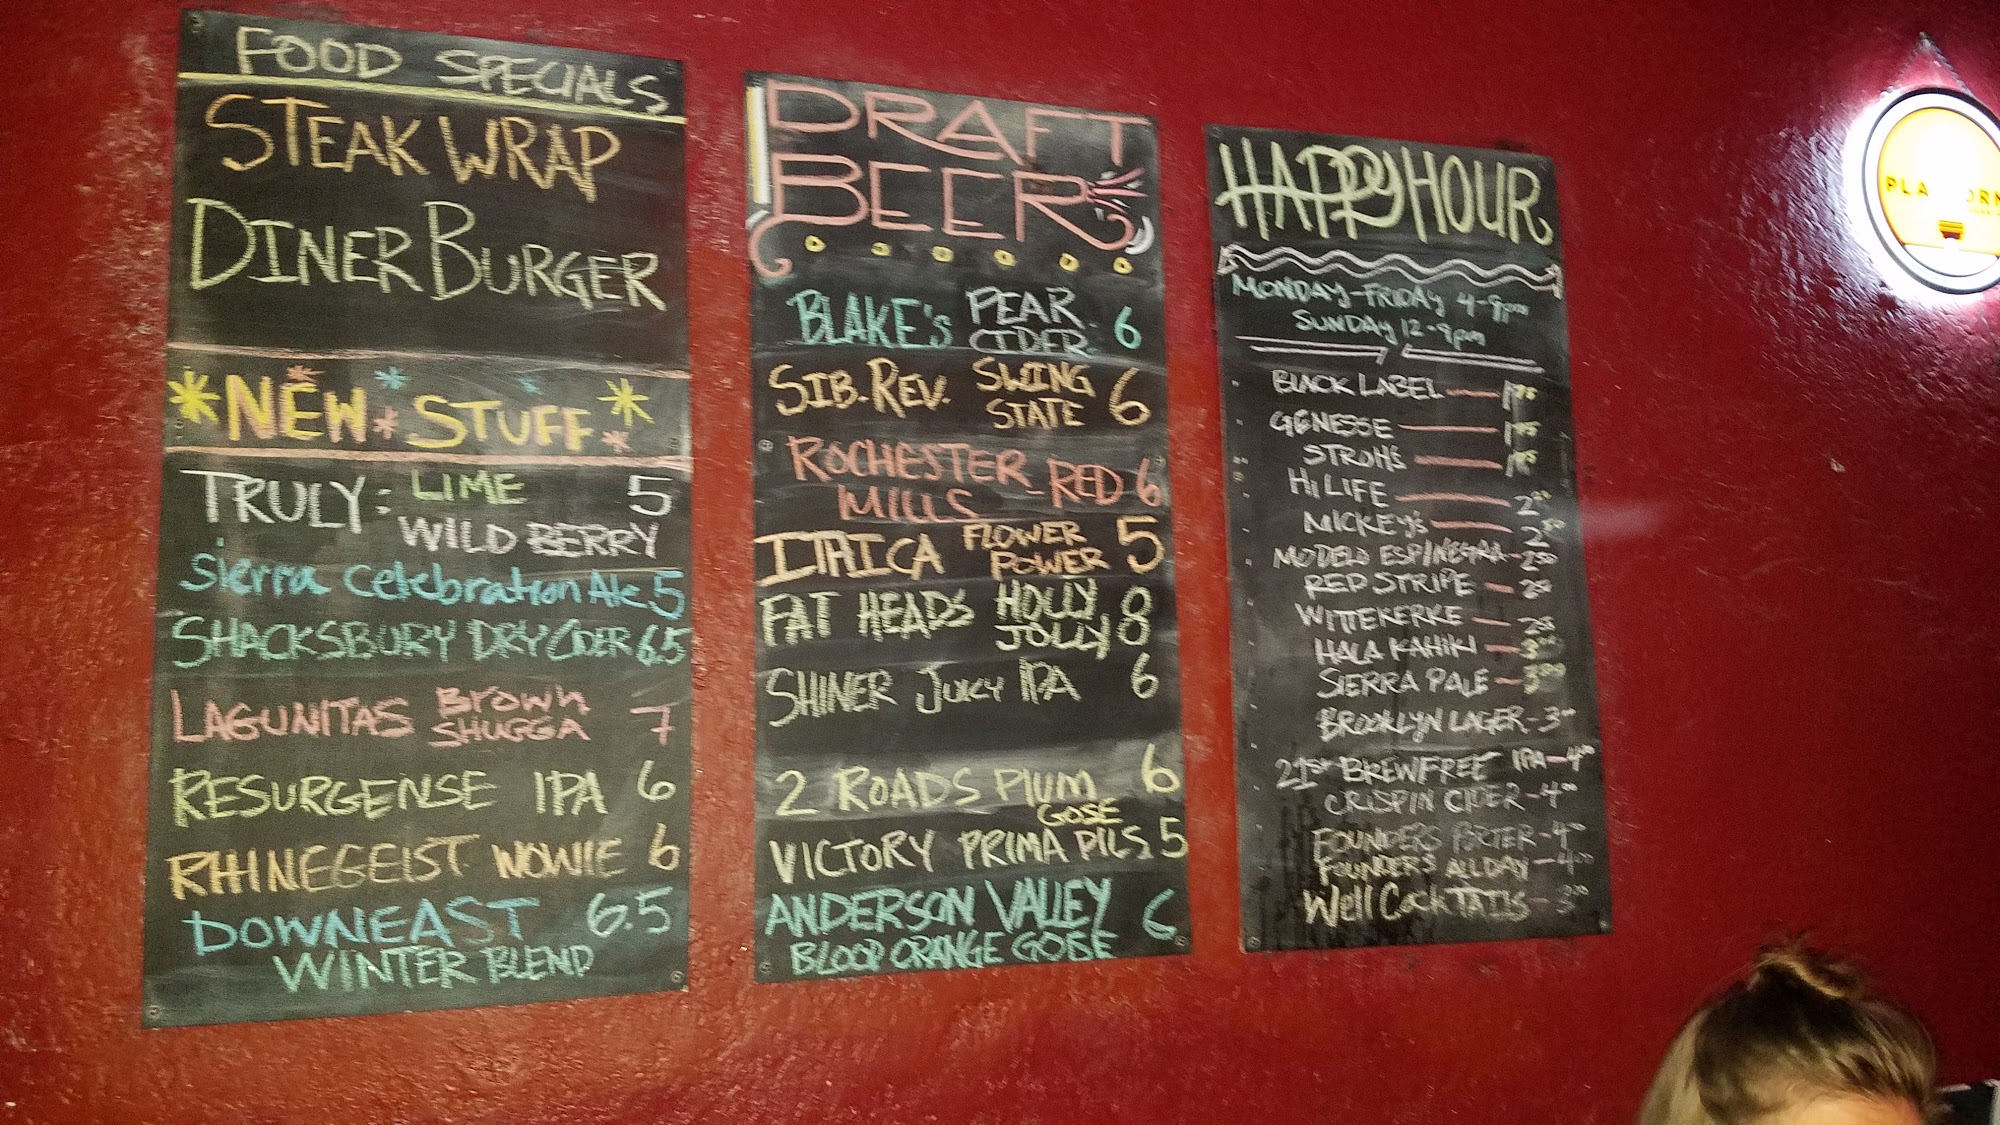 FOOD SPECIALS
STEAK WRAP
DINER BURGER
NEW STUFF
TRULY: LIME 5
WILD BERRY
Sierra Celebration Ale 5
SHACKSBURY DRY CIDER 6.5
LAGUNITAS Brown 7
SHUGGA
RESURGENSE IPA 6
RHINEGEIST WOWIE 6
DOWNEAST 6.5
WINTER BLEND
DRAFT
BEER
BLAKE'S PEAR 6
CIDER
SIB. REV. SWING 6
STATE
ROCHESTER
MILLS - RED 6
ITHICA FLOWER 5
POWER
FAT HEADS HOLLY 8
JOLLY 8
SHINER JUICY IPA 6
2 ROADS PLUM 6
GOSE
VICTORY PRIMA PILS 5
ANDERSON VALLEY 6
BLOOD ORANGE GOSE
HAPPY HOUR
MONDAY-FRIDAY 4-9pm
SUNDAY 12-9pm
BLACK LABEL — 1.75
GENESSE — 1.75
STROHS — 1.75
HI LIFE — 2
MICKEY'S — 2.50
MODELO ESP/NEGRA - 2.50
RED STRIPE - 2.50
WITTEKERKE - 2.50
HALA KAHIKI - 3.00
SIERRA PALE - 3.00
BROOKLYN LAGER - 3.00
21ST BREWFREE IPA - 4.00
CRISPIN CIDER - 4.00
FOUNDERS PORTER - 4.00
FOUNDERS ALLDAY - 4.00
Well CockTAILS - 3.00